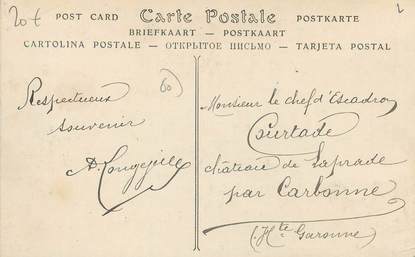 20€
POST CARD Carte Postale POSTKARTE
BRIEFKAART — POSTKAART
CARTOLINA POSTALE — ОТКРЫТОЕ ПИСЬМО — TARJETA POSTAL
Respectueux
souvenir
A.
Monsieur le chef d'Escadron
Courtade
château de Laprade
par Carbonne
(Hte Garonne)